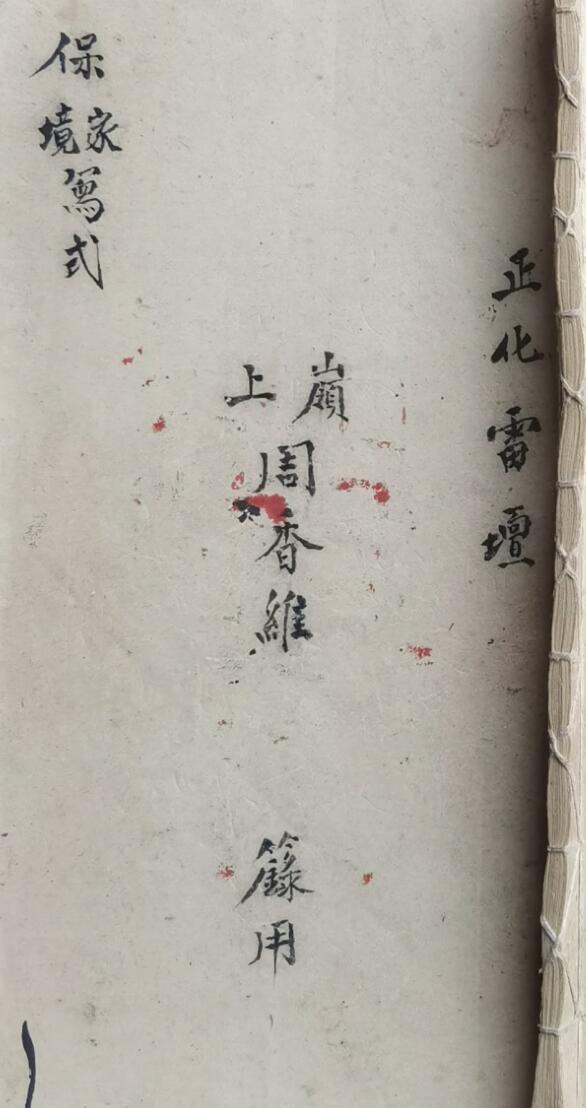 正化雷壇
嶺上
周香維
籙用
保家境寫式